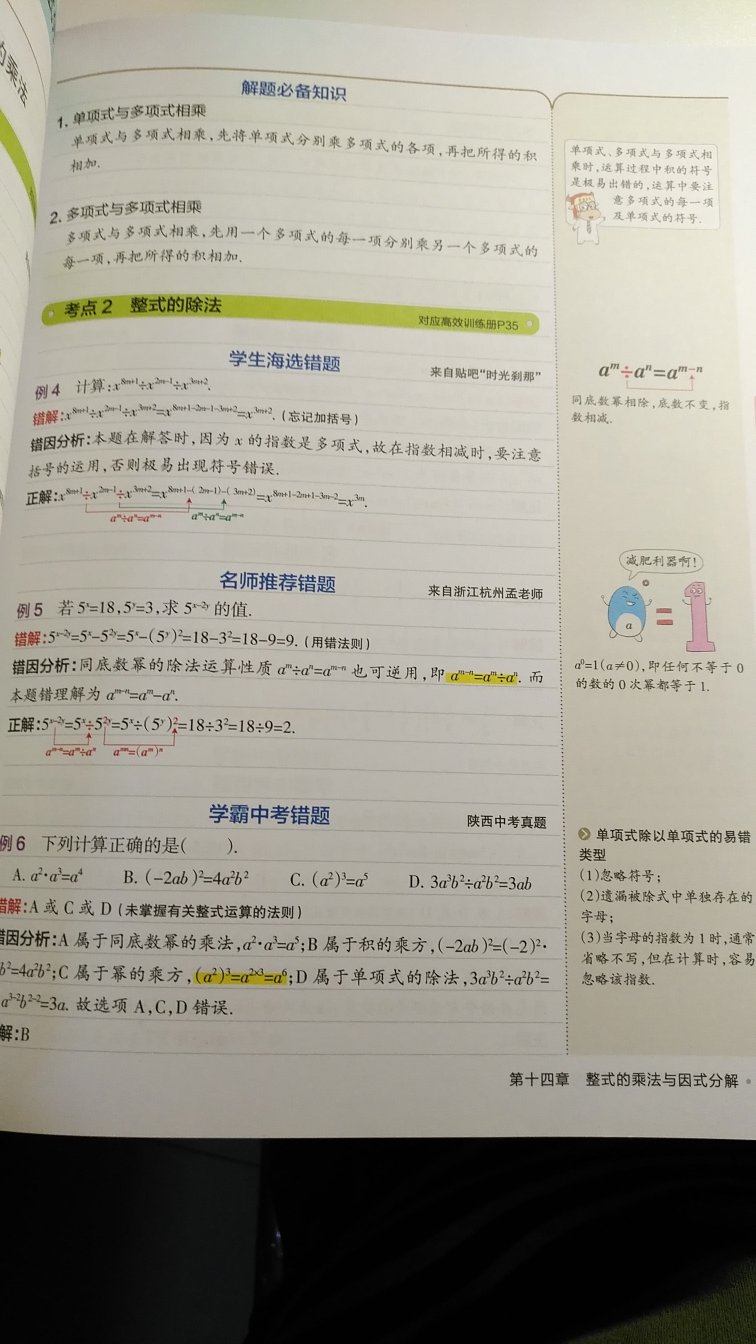 的乘法
解题必备知识
1. 单项式与多项式相乘
单项式与多项式相乘,先将单项式分别乘多项式的各项,再把所得的积
相加.
2. 多项式与多项式相乘
多项式与多项式相乘,先用一个多项式的每一项分别乘另一个多项式的
每一项,再把所得的积相加.
单项式、多项式与多项式相
乘时,运算过程中积的符号
是极易出错的,运算中要注
意多项式的每一项
及单项式的符号.
考点2 整式的除法
对应高效训练册P35
学生海选错题
来自贴吧“时光刹那”
例4 计算:x⁸ᵐ⁺¹÷x²ᵐ⁻¹÷x³ᵐ⁺².
错解:x⁸ᵐ⁺¹÷x²ᵐ⁻¹÷x³ᵐ⁺²=x⁸ᵐ⁺¹⁻²ᵐ⁻¹⁻³ᵐ⁺²=x³ᵐ⁺².(忘记加括号)
错因分析:本题在解答时,因为x的指数是多项式,故在指数相减时,要注意
括号的运用,否则极易出现符号错误.
正解:x⁸ᵐ⁺¹÷x²ᵐ⁻¹÷x³ᵐ⁺²=x⁸ᵐ⁺¹⁻⁽²ᵐ⁻¹⁾⁻⁽³ᵐ⁺²⁾=x⁸ᵐ⁺¹⁻²ᵐ⁺¹⁻³ᵐ⁻²=x³ᵐ.
aᵐ÷aⁿ=aᵐ⁻ⁿ aᵐ÷aⁿ=aᵐ⁻ⁿ
aᵐ÷aⁿ=aᵐ⁻ⁿ
同底数幂相除,底数不变,指
数相减.
名师推荐错题
来自浙江杭州孟老师
例5 若5ˣ=18,5ʸ=3,求5ˣ⁻²ʸ的值.
错解:5ˣ⁻²ʸ=5ˣ-5²ʸ=5ˣ-(5ʸ)²=18-3²=18-9=9.(用错法则)
错因分析:同底数幂的除法运算性质aᵐ÷aⁿ=aᵐ⁻ⁿ也可逆用,即aᵐ⁻ⁿ=aᵐ÷aⁿ.而
本题错理解为aᵐ⁻ⁿ=aᵐ-aⁿ.
正解:5ˣ⁻²ʸ=5ˣ÷5²ʸ=5ˣ÷(5ʸ)²=18÷3²=18÷9=2.
aᵐ⁻ⁿ=aᵐ÷aⁿ aᵐⁿ=(aᵐ)ⁿ
减肥利器啊!
a
=
a⁰=1(a≠0),即任何不等于0
的数的0次幂都等于1.
学霸中考错题
陕西中考真题
例6 下列计算正确的是( ).
A. a²·a³=a⁴ B. (-2ab)²=4a²b² C. (a²)³=a⁵ D. 3a³b²÷a²b²=3ab
错解:A或C或D(未掌握有关整式运算的法则)
错因分析:A属于同底数幂的乘法,a²·a³=a⁵;B属于积的乘方,(-2ab)²=(-2)²·
b²=4a²b²;C属于幂的乘方,(a²)³=a²ˣ³=a⁶;D属于单项式的除法,3a³b²÷a²b²=
a³⁻²b²⁻²=3a.故选项A,C,D错误.
解:B
单项式除以单项式的易错
类型
(1)忽略符号;
(2)遗漏被除式中单独存在的
字母;
(3)当字母的指数为1时,通常
省略不写,但在计算时,容易
忽略该指数.
第十四章 整式的乘法与因式分解